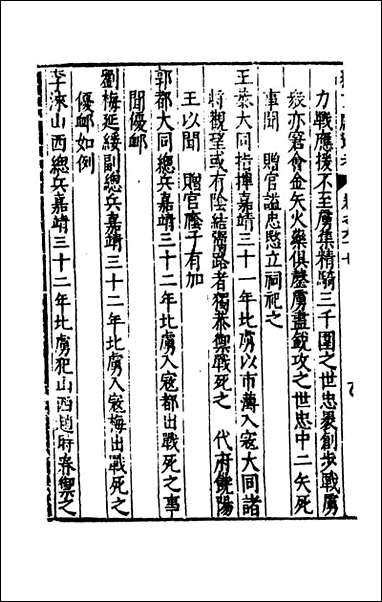 力戰應援不至虜集精騎三千圍之世忠裹創步戰虜
衆亦窘會金矢火藥俱盡虜盡銳攻之世忠中二矢死
事聞　贈官謚忠愍立祠祀之
王恭大同指揮嘉靖三十一年北虜以市薄入寇大同諸
將觀望或有陰結賂者獨恭禦戰死之　代府饒陽
王以聞　贈官廕子有加
郭都大同總兵嘉靖三十二年北虜入寇都出戰死之事
聞優卹
劉梅延綏副總兵嘉靖三十二年北虜入寇梅出戰死之
優卹如例
李淶山西總兵嘉靖三十二年北虜犯山西趙時春禦之